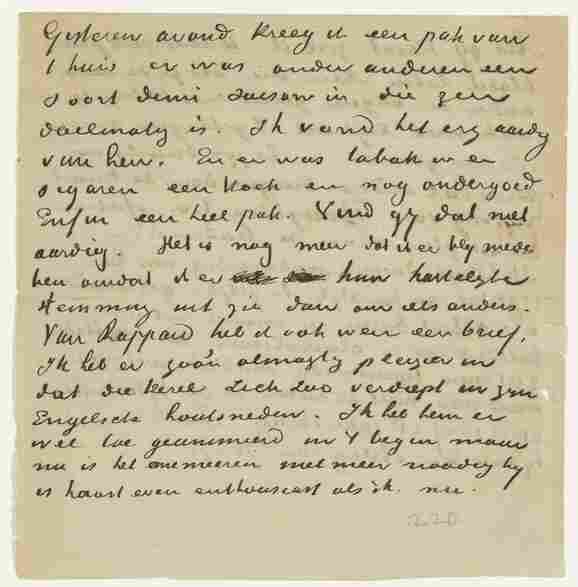 Gisteren avond kreeg ik een pak van
t huis er was onder anderen een
soort demi saison in die zeer
doelmatig is. Ik vond het erg aardig
van hen. En er was tabak in en
sigaren een koek en nog ondergoed
Enfin een heel pak. Vind gij dat niet
aardig. Het is nog meer dat ik er blij mede
ben omdat ik er hun hartelijke
stemming uit zie dan om iets anders.
Van Rappard heb ik ook weer een brief,
Ik heb er zoo'n almagtig pleizier in
dat die kerel zich zoo verdiept in zijn
Engelsche houtsneden. Ik heb hem er
wel toe geanimeerd in 't begin maar
nu is het animeeren niet meer noodig hij
is haast even enthousiast als ik nu.
220